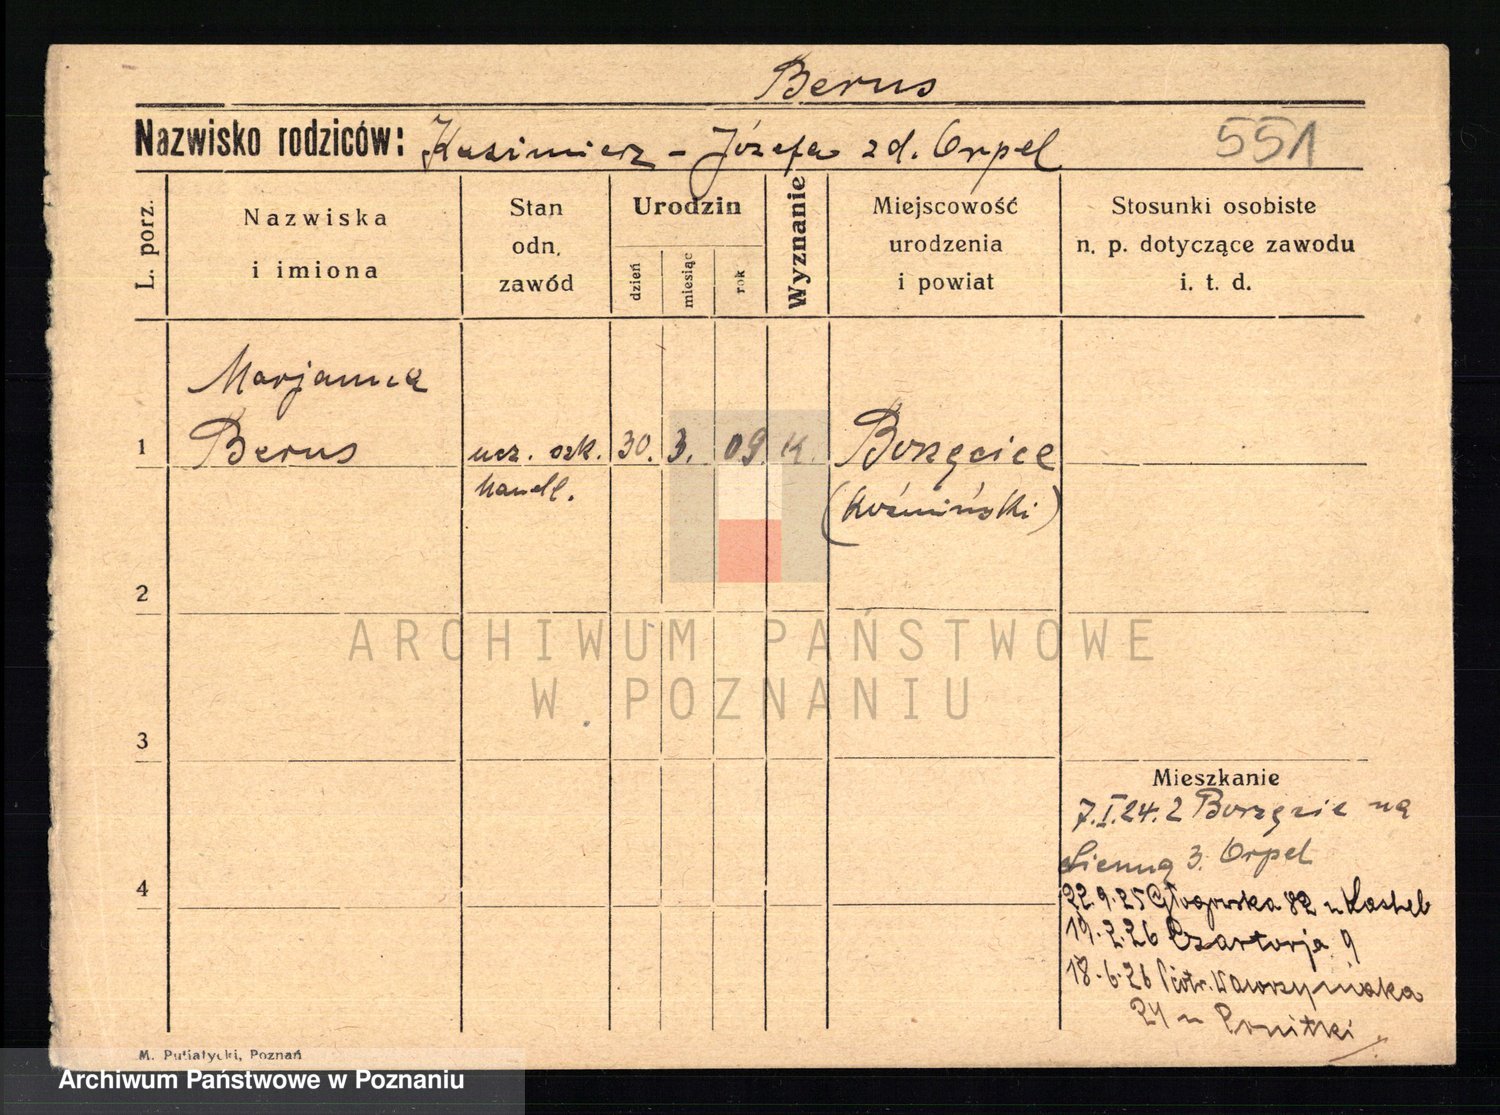 Berus
Nazwisko rodziców: Kazimierz - Józefa z d. Orpel 551
L. porz.
Nazwiska
i imiona
Stan
odn.
zawód
Urodzin
dzień
miesiąc
rok
Wyznanie
Miejscowość
urodzenia
i powiat
Stosunki osobiste
n. p. dotyczące zawodu
i. t. d.
Marjanna
1 Berus ucz. szk. 30. 3. 09 K. Borzęcice
handl. (Koźmiński)
2
ARCHIWUM PAŃSTWOWE
W POZNANIU
3
Mieszkanie
7.I.24. z Borzęcic na
3. Orpel
4
22.9.25 Głogowska 82
19.2.26 Czartorja 9
18.6.26 Piotr. Wawrzyniaka
24
M. Putiatycki, Poznań
Archiwum Państwowe w Poznaniu